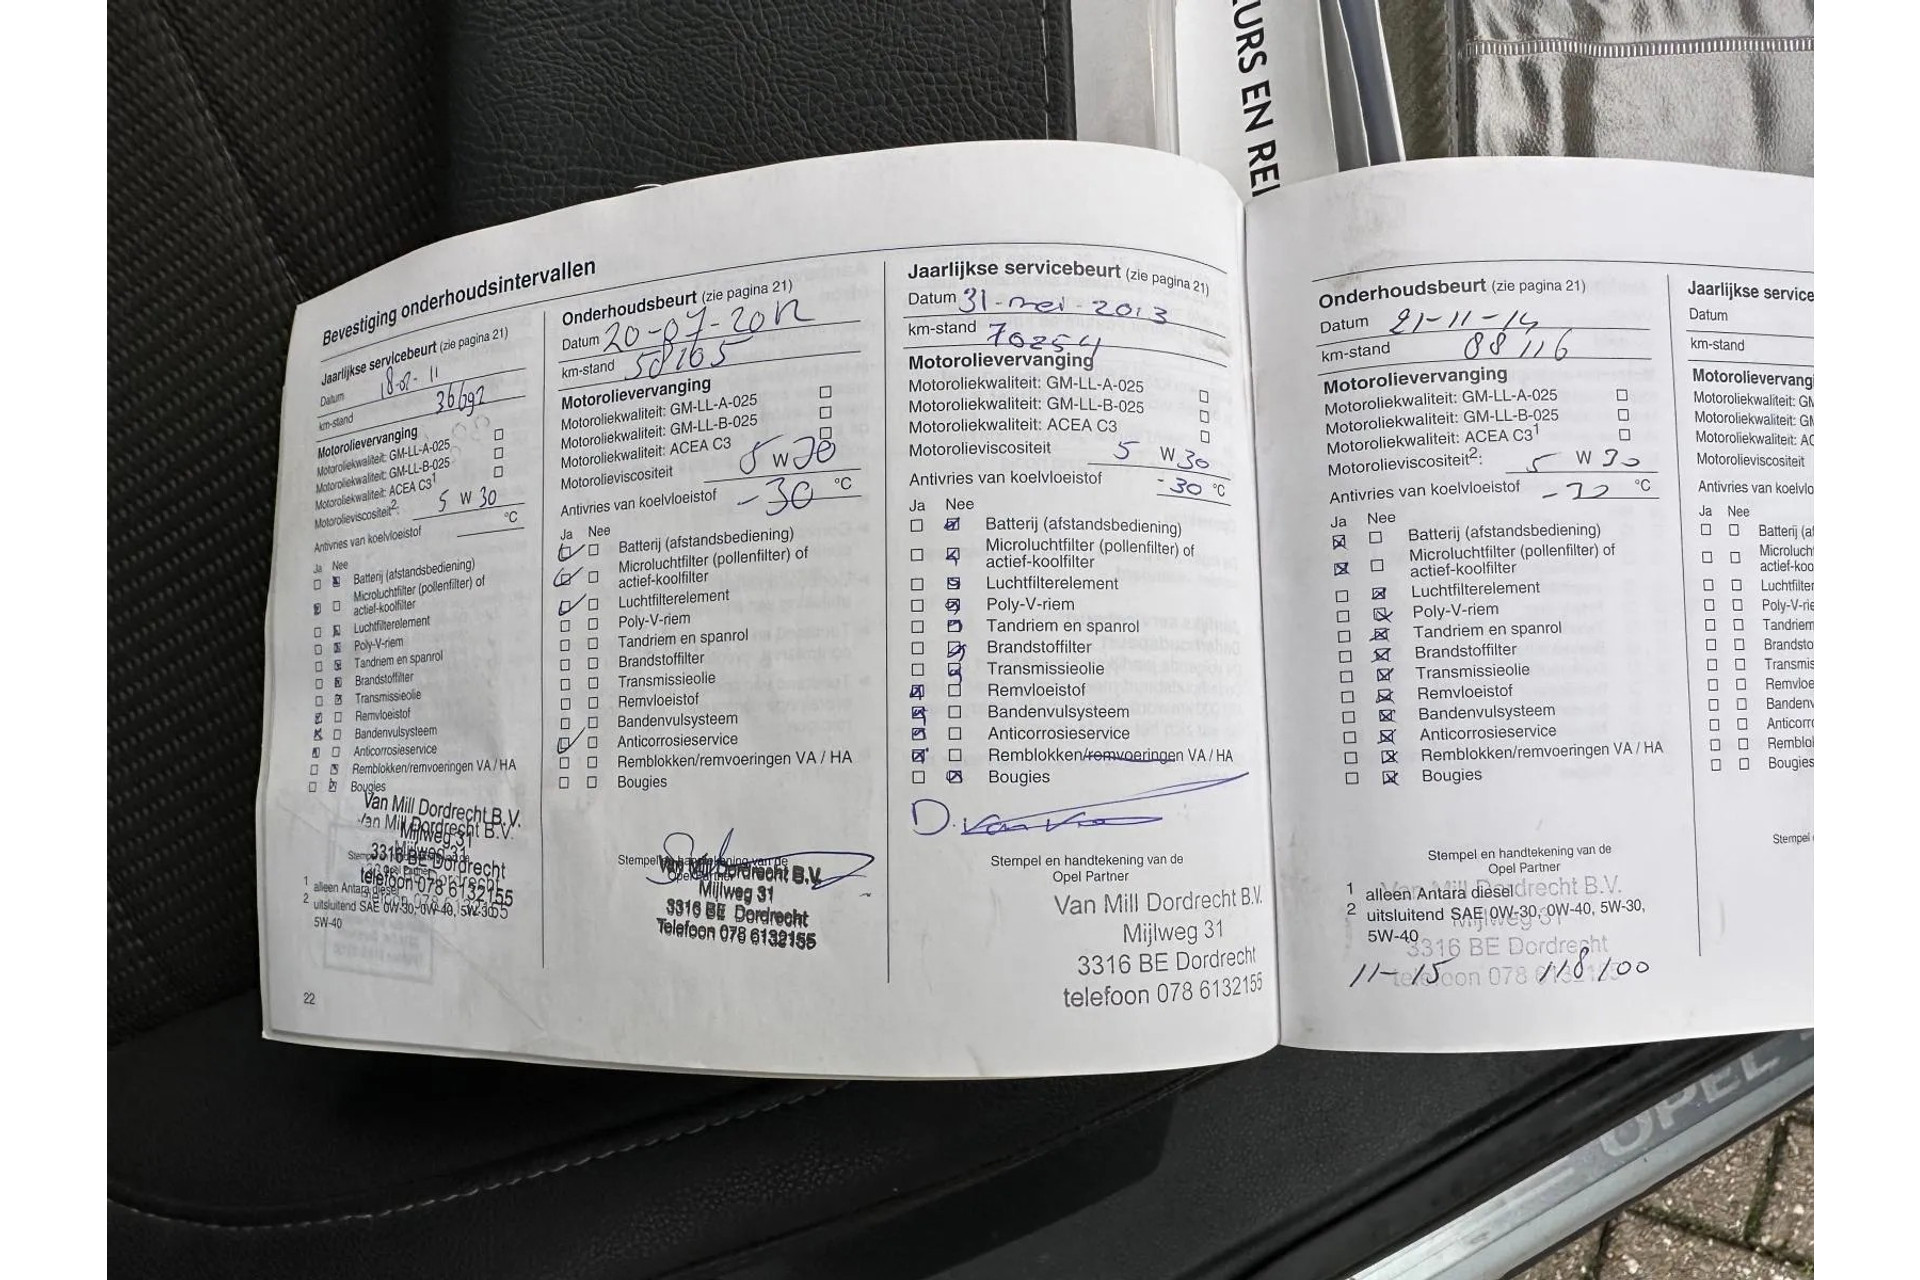 EURS EN REI
Bevestiging onderhoudsintervallen
Jaarlijkse servicebeurt (zie pagina 21)
Datum
km-stand 36692
Motorolievervanging
Motoroliekwaliteit: GM-LL-A-025
Motoroliekwaliteit: GM-LL-B-025
Motoroliekwaliteit: ACEA C3¹
Motorolieviscositeit²: 5 W 30
Antivries van koelvloeistof °C
Ja Nee
Batterij (afstandsbediening)
Microluchtfilter (pollenfilter) of
actief-koolfilter
Luchtfilterelement
Poly-V-riem
Tandriem en spanrol
Brandstoffilter
Transmissieolie
Remvloeistof
Bandenvulsysteem
Anticorrosieservice
Remblokken/remvoeringen VA / HA
Bougies
Van Mill Dordrecht B.V.
Mijlweg 31
3316 BE Dordrecht
telefoon 078 6132155
1 alleen Antara diesel
2 uitsluitend SAE 0W-30, 0W-40, 5W-30
5W-40
22
Onderhoudsbeurt (zie pagina 21)
Datum 20-07-2012
km-stand 58165
Motorolievervanging
Motoroliekwaliteit: GM-LL-A-025
Motoroliekwaliteit: GM-LL-B-025
Motoroliekwaliteit: ACEA C3
Motorolieviscositeit 5 W 30
Antivries van koelvloeistof -30 °C
Ja Nee
Batterij (afstandsbediening)
Microluchtfilter (pollenfilter) of
actief-koolfilter
Luchtfilterelement
Poly-V-riem
Tandriem en spanrol
Brandstoffilter
Transmissieolie
Remvloeistof
Bandenvulsysteem
Anticorrosieservice
Remblokken/remvoeringen VA / HA
Bougies
Stempel en handtekening van de
Opel Partner
Van Mill Dordrecht B.V.
Mijlweg 31
3316 BE Dordrecht
Telefoon 078 6132155
Jaarlijkse servicebeurt (zie pagina 21)
Datum 31-mei-2013
km-stand 70254
Motorolievervanging
Motoroliekwaliteit: GM-LL-A-025
Motoroliekwaliteit: GM-LL-B-025
Motoroliekwaliteit: ACEA C3
Motorolieviscositeit 5 W 30
Antivries van koelvloeistof -30 °C
Ja Nee
Batterij (afstandsbediening)
Microluchtfilter (pollenfilter) of
actief-koolfilter
Luchtfilterelement
Poly-V-riem
Tandriem en spanrol
Brandstoffilter
Transmissieolie
Remvloeistof
Bandenvulsysteem
Anticorrosieservice
Remblokken/remvoeringen VA / HA
Bougies
Stempel en handtekening van de
Opel Partner
Van Mill Dordrecht B.V.
Mijlweg 31
3316 BE Dordrecht
telefoon 078 6132155
Onderhoudsbeurt (zie pagina 21)
Datum 21-11-14
km-stand 88116
Motorolievervanging
Motoroliekwaliteit: GM-LL-A-025
Motoroliekwaliteit: GM-LL-B-025
Motoroliekwaliteit: ACEA C3¹
Motorolieviscositeit²: 5 W 30
Antivries van koelvloeistof -30 °C
Ja Nee
Batterij (afstandsbediening)
Microluchtfilter (pollenfilter) of
actief-koolfilter
Luchtfilterelement
Poly-V-riem
Tandriem en spanrol
Brandstoffilter
Transmissieolie
Remvloeistof
Bandenvulsysteem
Anticorrosieservice
Remblokken/remvoeringen VA / HA
Bougies
Stempel en handtekening van de
Opel Partner
1 alleen Antara diesel
2 uitsluitend SAE 0W-30, 0W-40, 5W-30,
5W-40
Van Mill Dordrecht B.V.
Mijlweg 31
3316 BE Dordrecht
telefoon 078 6132155
11-15 118100
Jaarlijkse service
Datum
km-stand
Motorolievervang
Motoroliekwaliteit: GM
Motoroliekwaliteit: GM
Motoroliekwaliteit: AC
Motorolieviscositeit
Antivries van koelvlo
Ja Nee
Batterij (af
Microluch
actief-koo
Luchtfilter
Poly-V-rie
Tandriem
Brandsto
Transmis
Remvloe
Banden
Anticorro
Remblol
Bougies
Stempel
OPEL